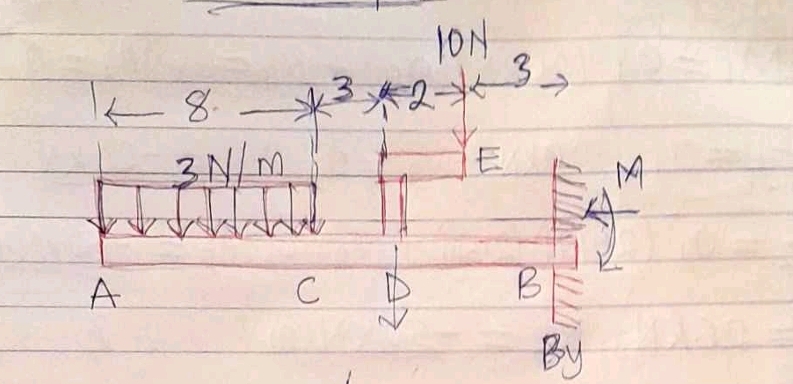 10N
8 3 2 3
3 N/M
E
M
A C D B
By